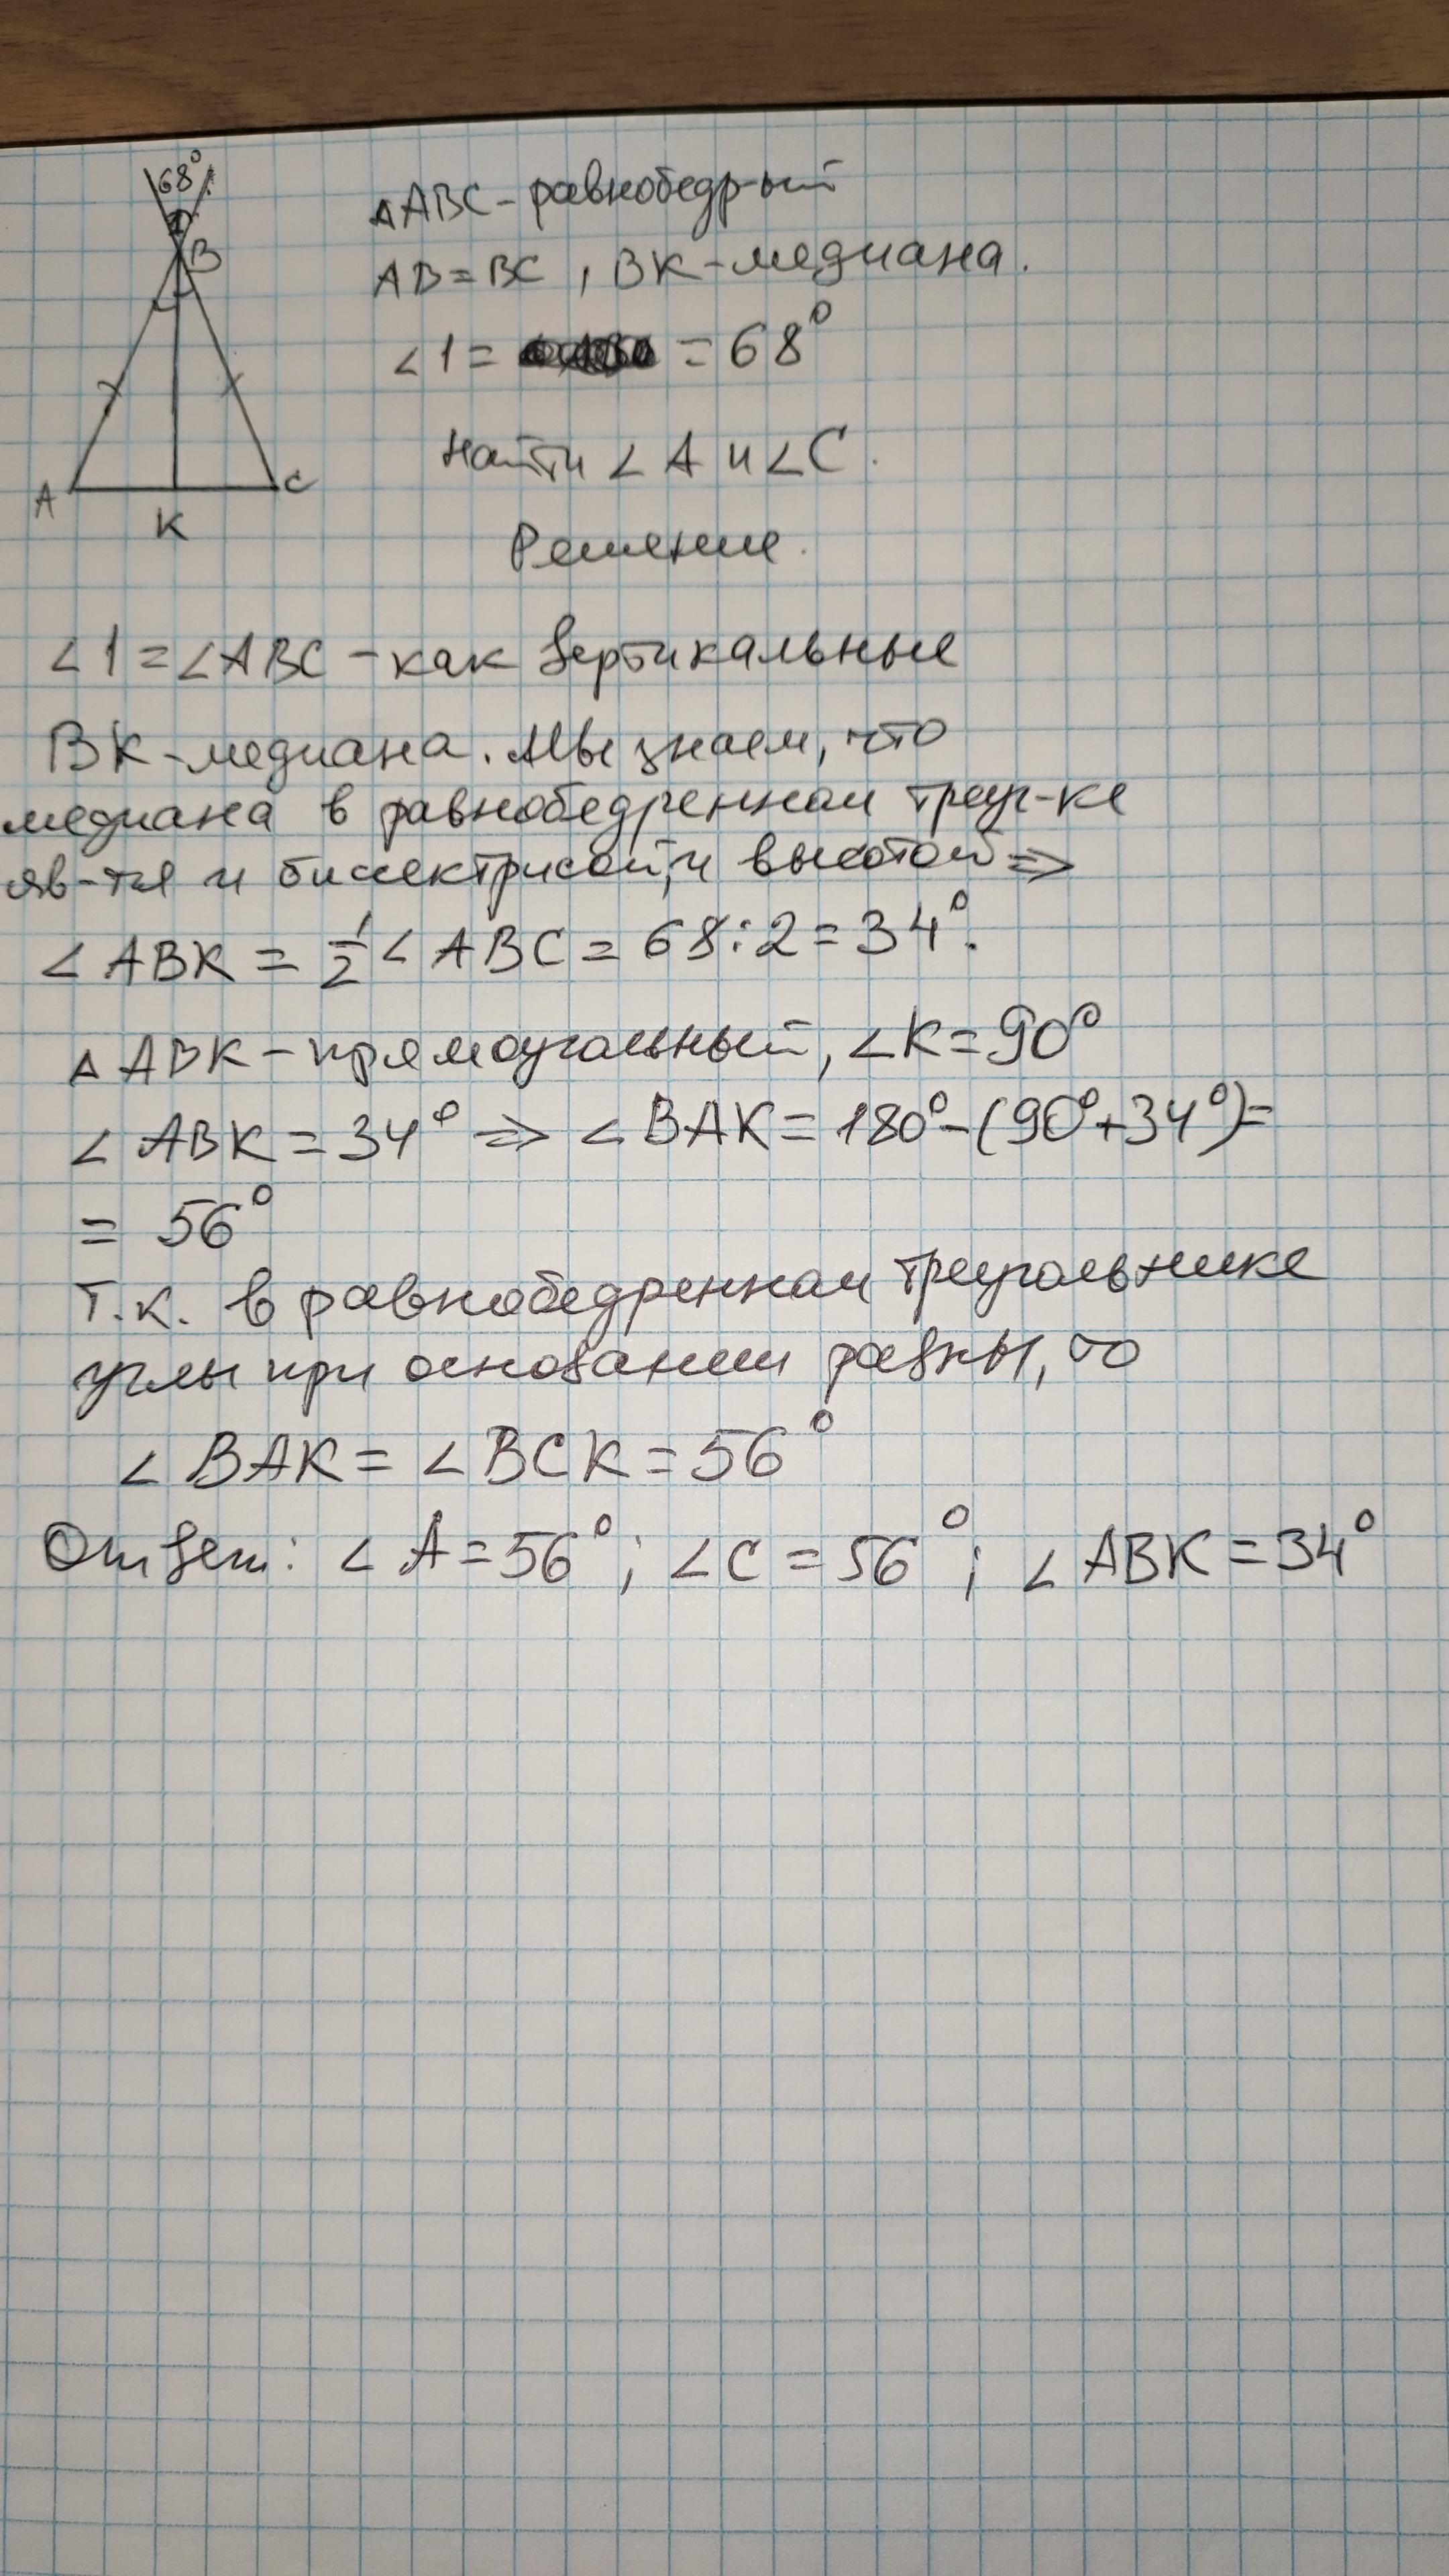 68°
1
B
A
C
K
△ABC - равнобедр-ый
AB = BC, BK - медиана.
∠1 = = 68°
Найти ∠A и ∠C.
Решение.
∠1 = ∠ABC - как вертикальные
BK - медиана. Мы знаем, что
медиана в равнобедренном треуг-ке
яв-тся и биссектрисой, и высотой ⇒
∠ABK = 1/2 ∠ABC = 68:2 = 34°.
△ABK - прямоугольный, ∠K = 90°
∠ABK = 34° ⇒ ∠BAK = 180° - (90° + 34°) =
= 56°
Т.к. в равнобедренном треугольнике
углы при основании равны, то
∠BAK = ∠BCK = 56°
Ответ: ∠A = 56°; ∠C = 56°; ∠ABK = 34°